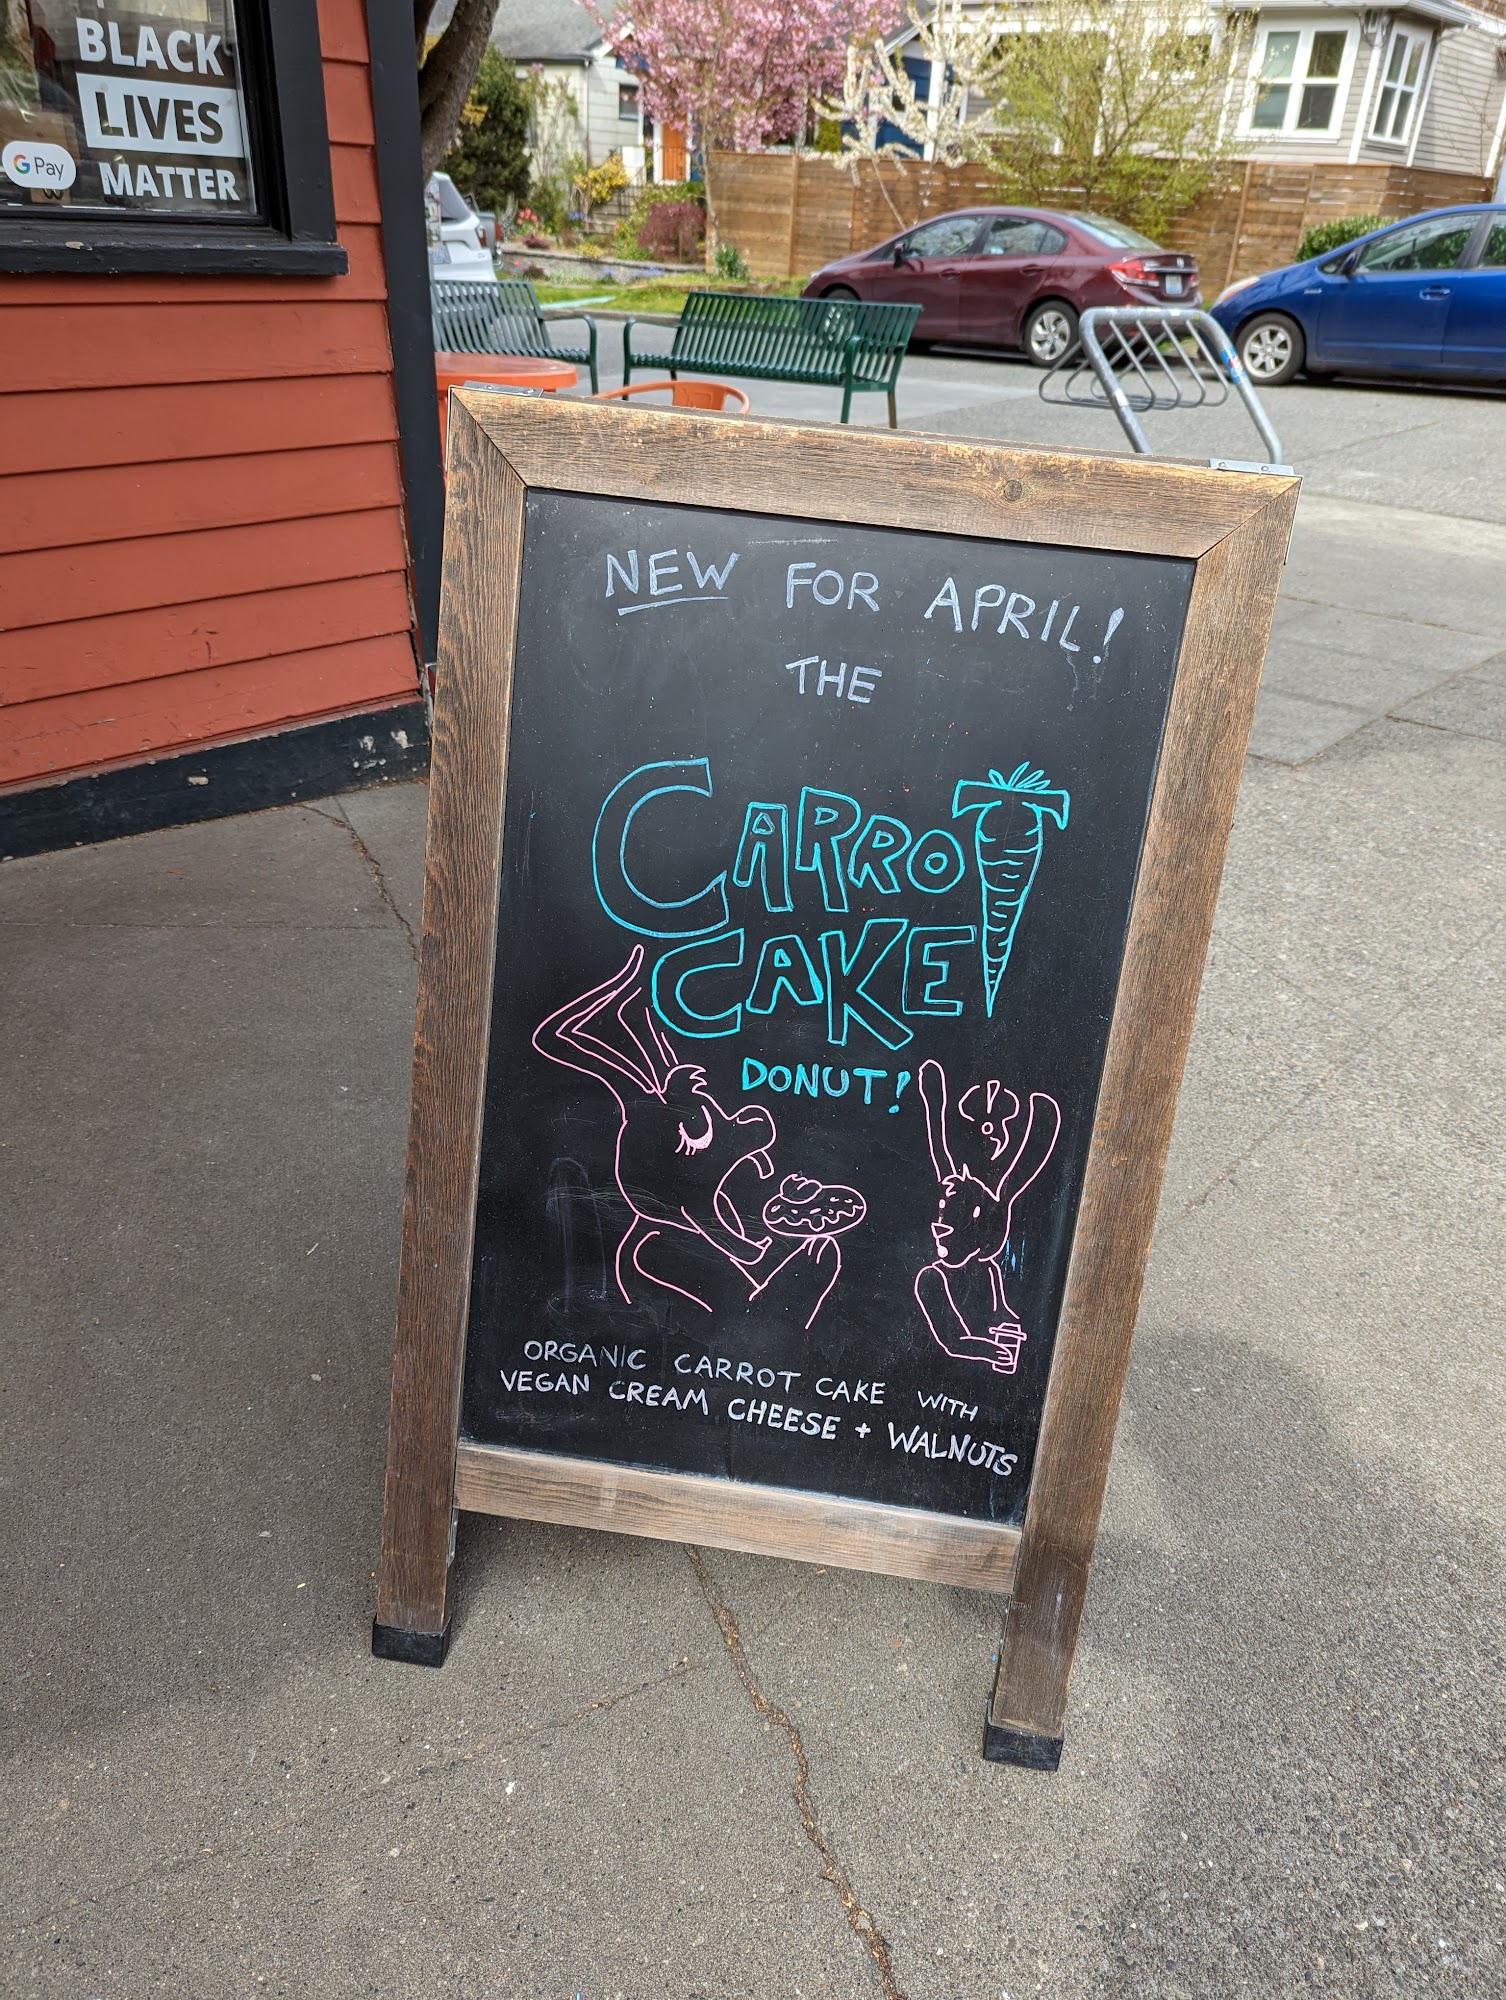 BLACK
LIVES
MATTER
G Pay
NEW FOR APRIL!
THE
CARROT
CAKE
DONUT!
!?
ORGANIC CARROT CAKE WITH
VEGAN CREAM CHEESE + WALNUTS